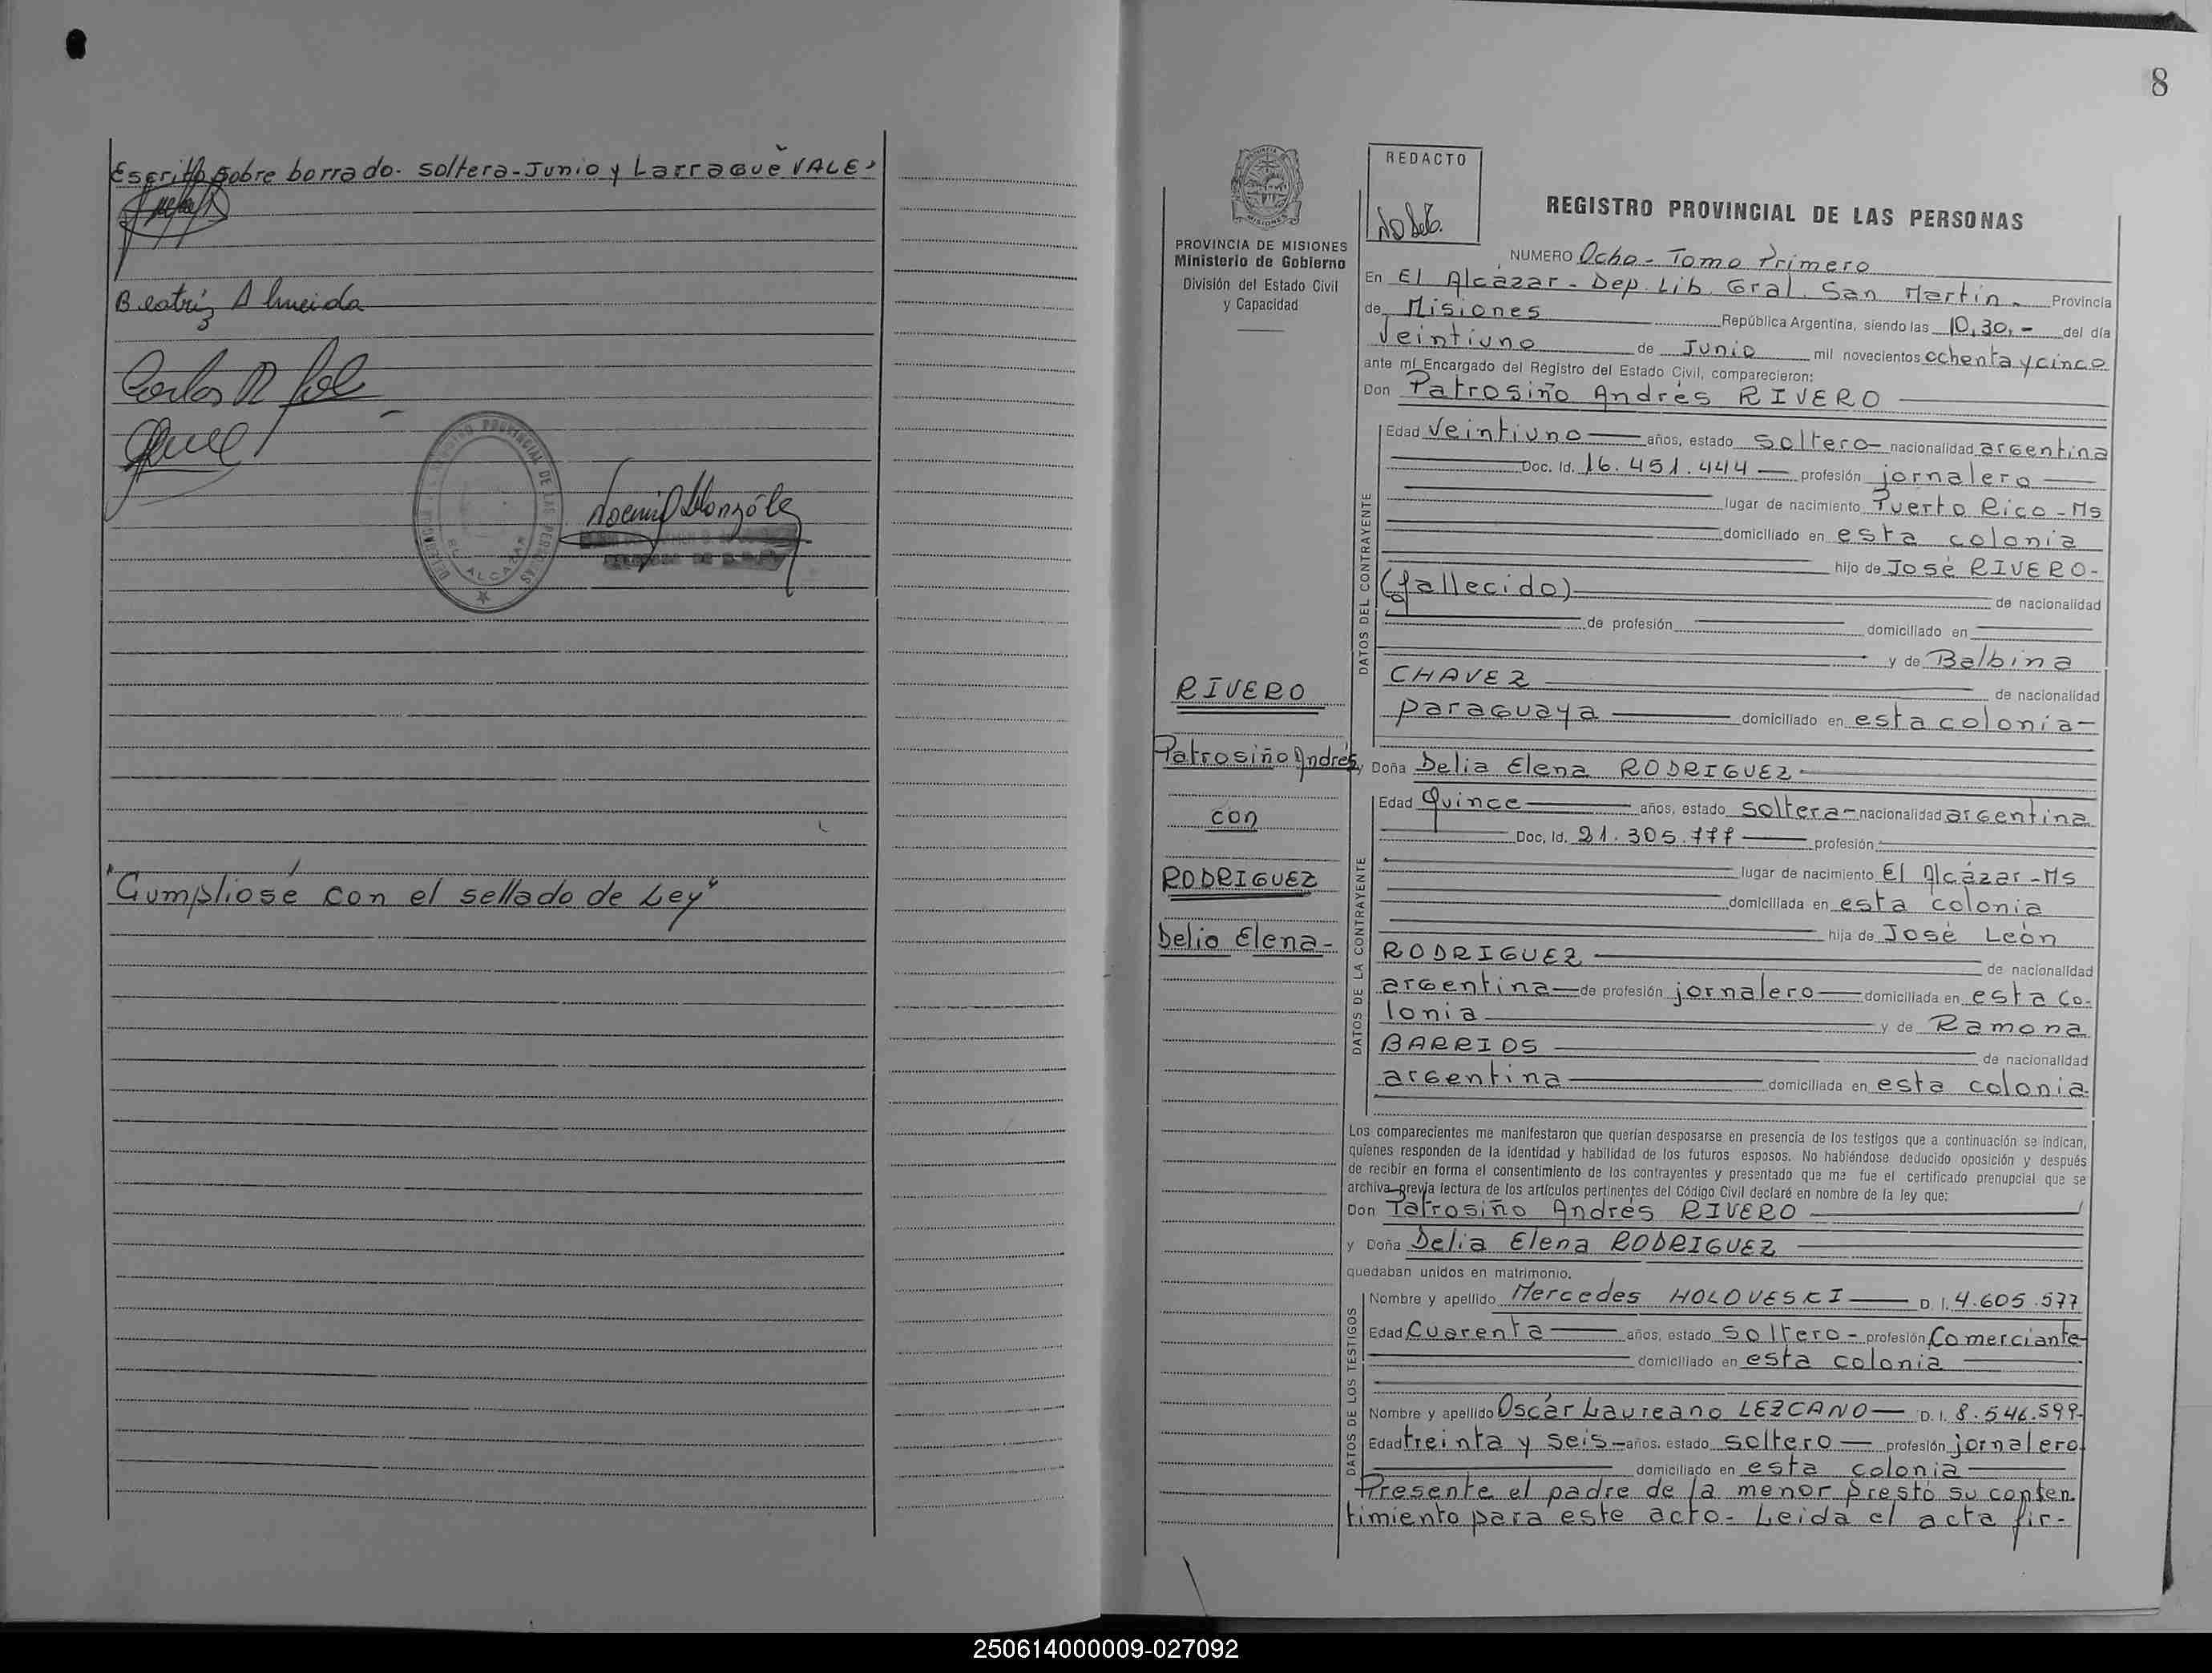 Escrito sobre borrado. soltera - Junio y Larraguě VALE.
Beatriz Almeida
Carlos
REGISTRO PROVINCIAL DE LAS PERSONAS
EL ALCAZAR
"Cumpliose con el sellado de Ley"
8
REDACTO
REGISTRO PROVINCIAL DE LAS PERSONAS
PROVINCIA DE MISIONES
Ministerio de Gobierno
División del Estado Civil
y Capacidad
NUMERO Ocho - Tomo Primero
En El Alcázar - Dep. Lib. Gral. San Martín - Provincia
de Misiones República Argentina, siendo las 10,30,- del día
Veintiuno de Junio mil novecientos ochenta y cinco
ante mí Encargado del Registro del Estado Civil, comparecieron:
Don Patrosiño Andrés RIVERO
Edad Veintiuno años, estado soltero - nacionalidad argentina
Doc. Id. 16.451.444 profesión jornalero
lugar de nacimiento Puerto Rico - Ms
domiciliado en esta colonia
hijo de José RIVERO -
(fallecido) de nacionalidad
de profesión domiciliado en
y de Balbina
CHAVEZ de nacionalidad
paraguaya domiciliado en esta colonia -
DATOS DEL CONTRAYENTE
RIVERO
Patrosiño Andrés
con
RODRIGUEZ
Delia Elena -
y Doña Delia Elena RODRIGUEZ
Edad Quince años, estado soltera - nacionalidad argentina
Doc. Id. 21.305.777 profesión
lugar de nacimiento El Alcázar - Ms
domiciliada en esta colonia
hija de José León
RODRIGUEZ de nacionalidad
argentina de profesión jornalero domiciliada en esta co-
lonia y de Ramona
BARRIOS de nacionalidad
argentina domiciliada en esta colonia
DATOS DE LA CONTRAYENTE
Los comparecientes me manifestaron que querían desposarse en presencia de los testigos que a continuación se indican,
quienes responden de la identidad y habilidad de los futuros esposos. No habiéndose deducido oposición y después
de recibir en forma el consentimiento de los contrayentes y presentado que me fue el certificado prenupcial que se
archiva previa lectura de los artículos pertinentes del Código Civil declaré en nombre de la ley que:
Don Patrosiño Andrés RIVERO
y Doña Delia Elena RODRIGUEZ
quedaban unidos en matrimonio.
Nombre y apellido Mercedes HOLOVESKI D. I. 4.605.577
Edad Cuarenta años, estado soltero - profesión Comerciante
domiciliado en esta colonia
Nombre y apellido Oscár Laureano LEZCANO D. I. 8.546.599
Edad treinta y seis - años, estado soltero profesión jornalero
domiciliado en esta colonia
DATOS DE LOS TESTIGOS
Presente el padre de la menor prestó su conten
timiento para este acto - Leida el acta fir-
250614000009-027092